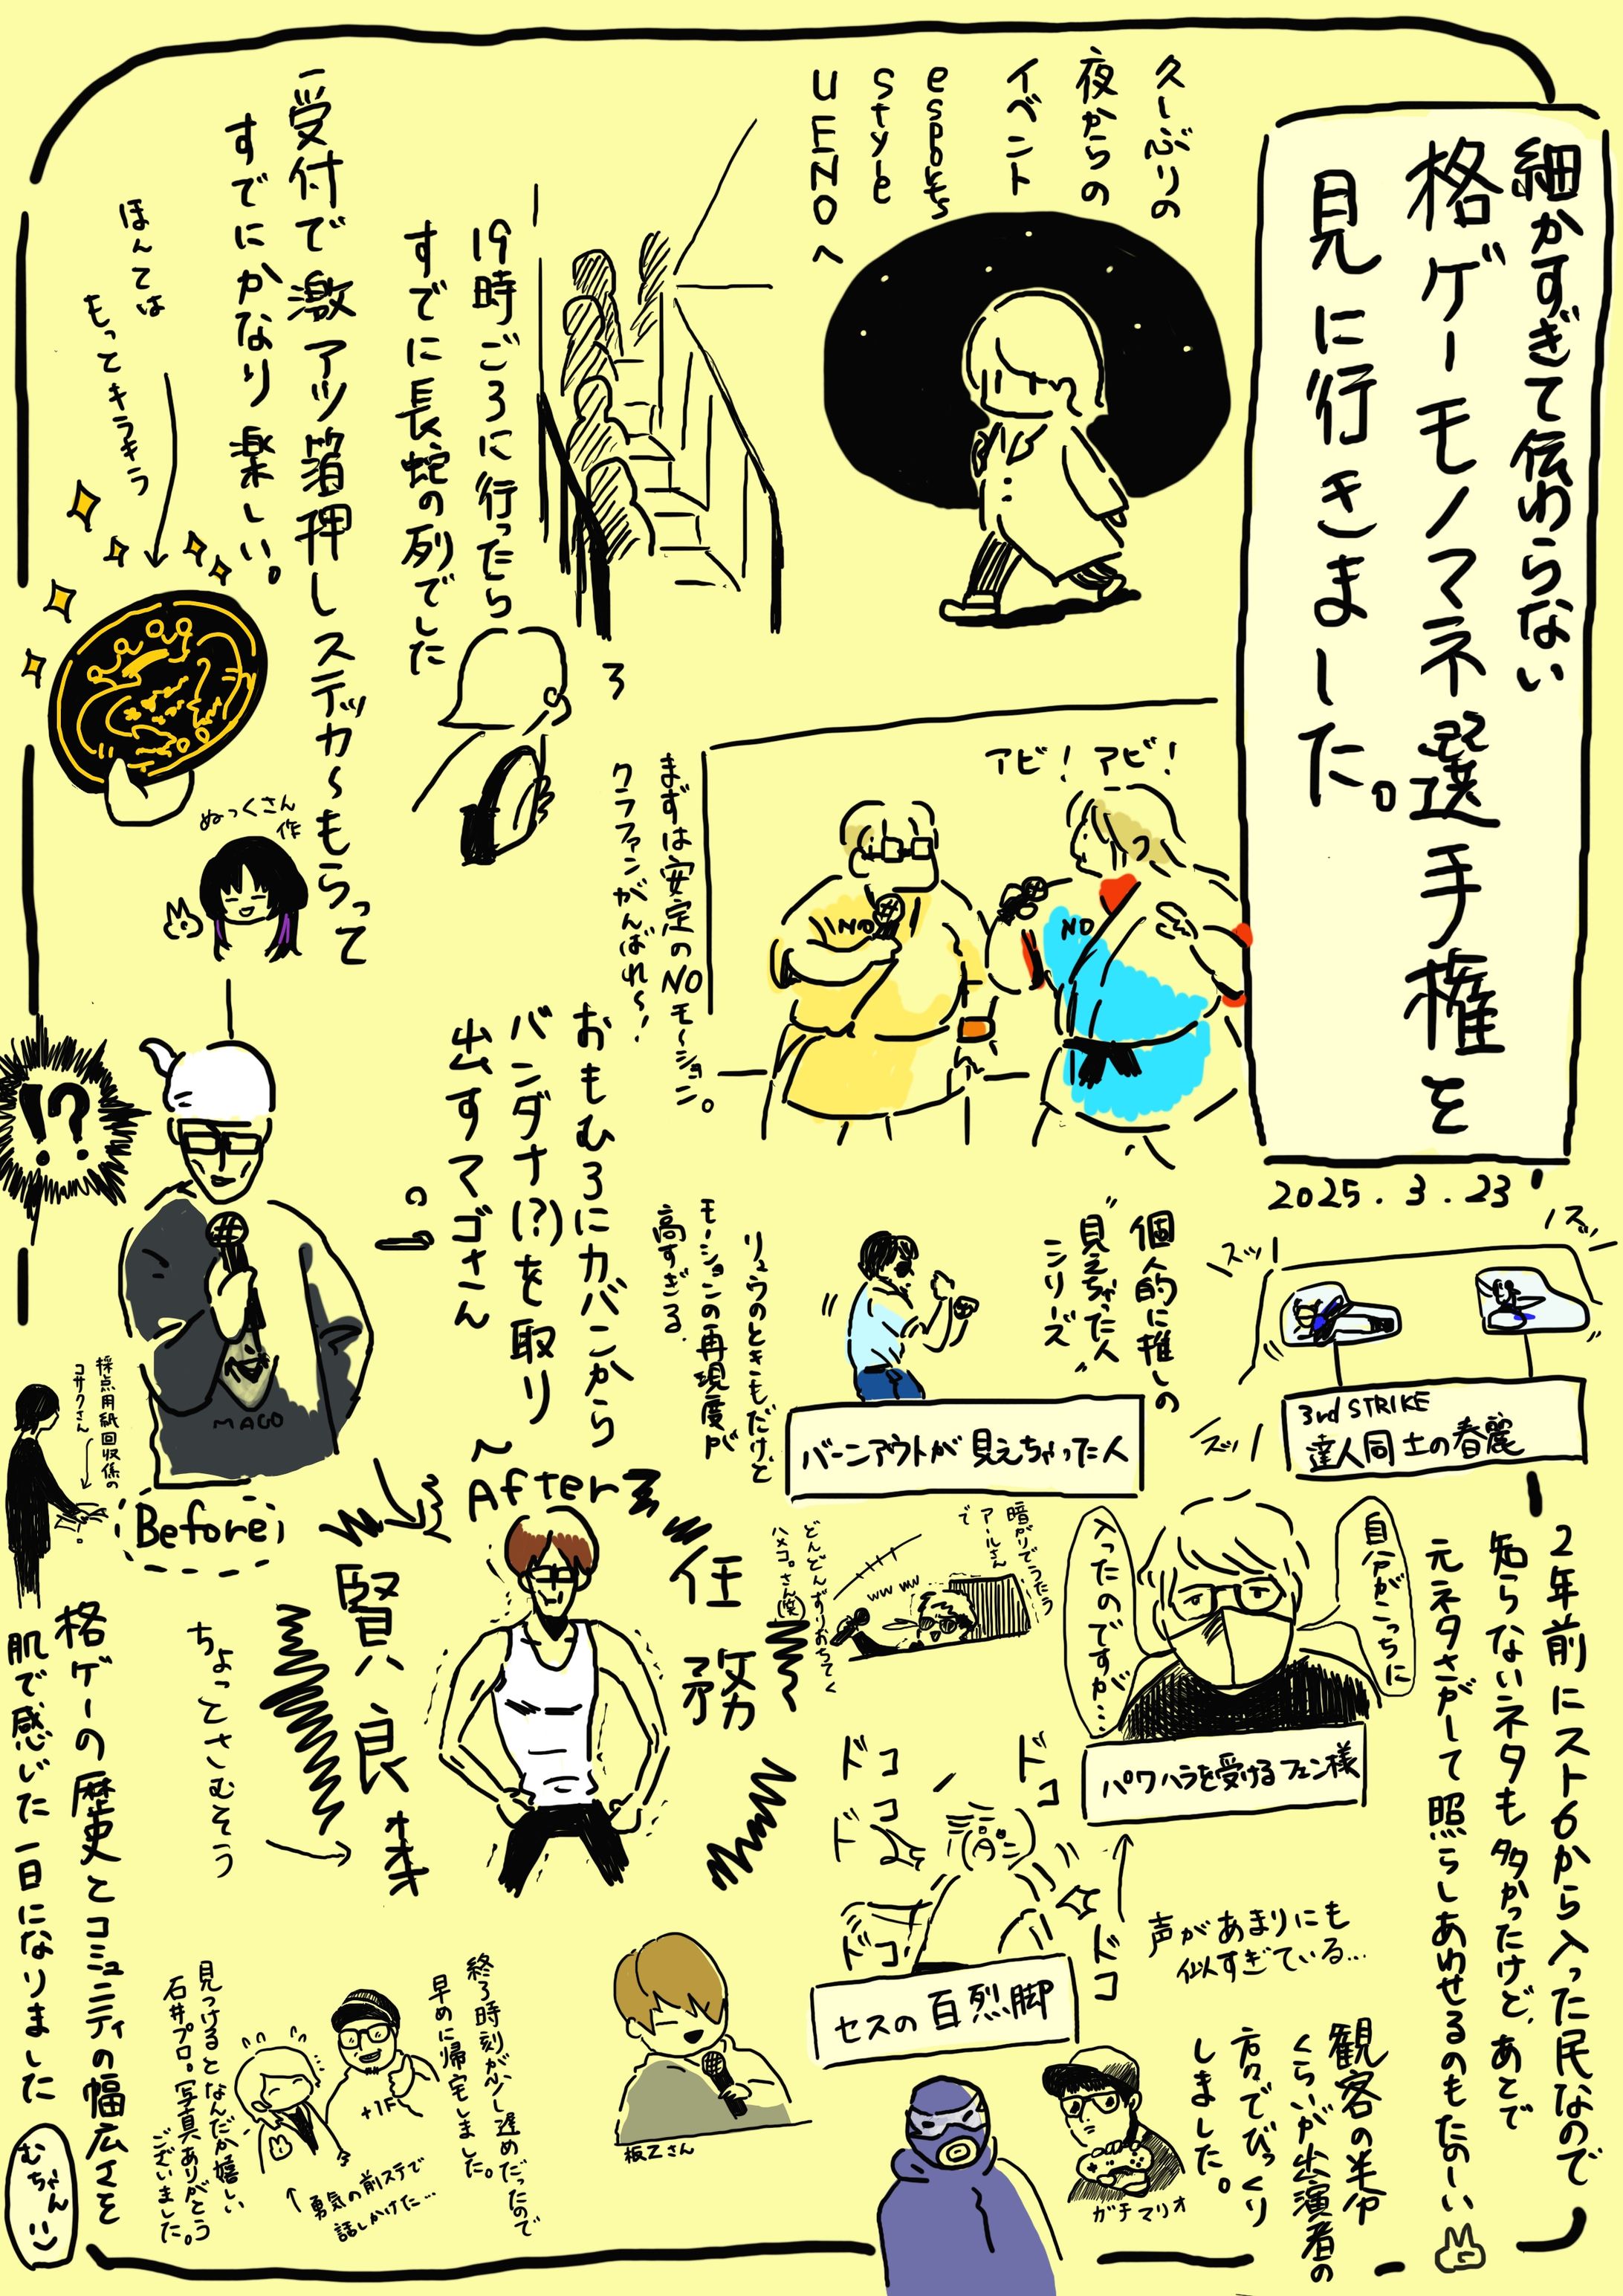 細かすぎて伝わらない
格ゲーモノマネ選手権を
見に行きました。
2025.3.23
久しぶりの
夜からの
イベント
esports
Style
UENOへ
19時ごろに行ったら
すでに長蛇の列でした
受付で激アツ箔押しステッカーもらって
すでにかなり楽しい。
ほんとは
もっとキラキラ
ぬっくさん
作
アビ!アビ!
NO
NO
まずは安定のNOモーション。
クラファンがんばれ〜!
おもむろにカバンから
バンダナ(?)を取り
出すマゴさん
!?
MAGO
採点用紙回収係の
コサクさん
Before
After
任務
賢良才
ちょっとさむそう
ズッ!
ズッ!
ズッ!
3rd STRIKE
達人同士の春麗
個人的に推しの
"見えちゃった人"
シリーズ
バーンアウトが見えちゃった人
リュウのときもだけど
モーションの再現度が
高すぎる。
自分がこっちに
入ったのですが…
パワハラを受けるフェン様
声があまりにも
似すぎている…
暗がりでうたう
アールさん
で
どんどんずりおちてく
ハメコ。さん(笑)
ww ww
ドコ
ドコ
ドコ
ドコ
ドコ
セスの百烈脚
2年前にスト6から入った民なので
知らないネタも多かったけど、あとで
元ネタさがして照らしあわせるのもたのしい
観客の半分
くらいが出演者の
方々でびっくり
しました。
ガチマリオ
板Zさん
終了時刻が少し遅めだったので
早めに帰宅しました。
+1F
勇気の前ステで
話しかけた…
見つけるとなんだか嬉しい
石井プロ。写真ありがとう
ございました。
格ゲーの歴史とコミュニティの幅広さを
肌で感じた一日になりました
むちゃん